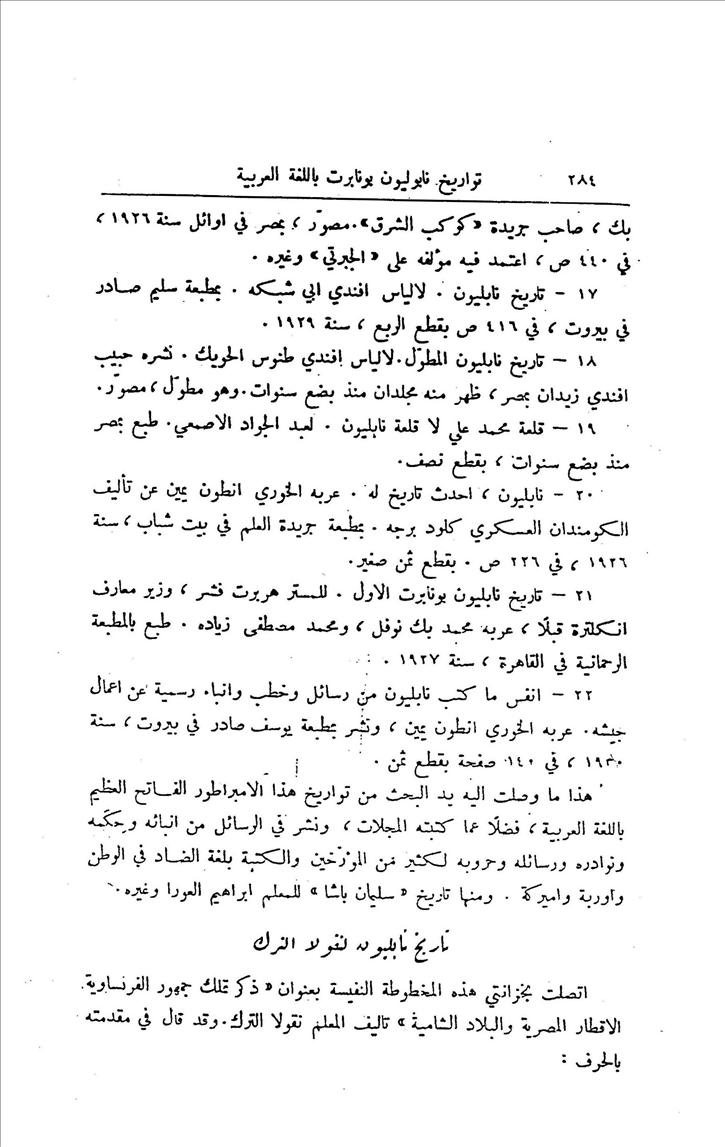 ٢٨٤ تواريخ نابوليون بونابرت باللغة العربية
بك ، صاحب جريدة «كوكب الشرق». مصوّر ، بمصر في اوائل سنة ١٩٢٦ ،
في ٤٤٠ ص ، اعتمد فيه مؤلفه على «الجبرتي» وغيره .
١٧ – تاريخ نابليون . لالياس افندي ابي شبكه . بمطبعة سليم صادر
في بيروت ، في ٤١٦ ص بقطع الربع ، سنة ١٩٢٩ .
١٨ – تاريخ نابليون المطوّل. لالياس افندي طنوس الحويك . نشره حبيب
افندي زيدان بمصر ، ظهر منه مجلدان منذ بضع سنوات. وهو مطوّل ، مصوّر.
١٩ – قلعة محمد علي لا قلعة نابليون . لعبد الجواد الاصمعي. طبع بمصر
منذ بضع سنوات ، بقطع نصف.
٢٠ – نابليون ، احدث تاريخ له . عربه الخوري انطون يمين عن تأليف
الكومندان العسكري كلود برجه . بمطبعة جريدة العلم في بيت شباب ، سنة
١٩٢٦ ، في ٢٢٦ ص . بقطع ثمن صغير.
٢١ – تاريخ نابليون بونابرت الاول . للمستر هربرت فشر ، وزير معارف
انكلترة قبلًا ، عربه محمد بك نوفل ، ومحمد مصطفى زياده . طبع بالمطبعة
الرحمانية في القاهرة ، سنة ١٩٢٧ .
٢٢ – انفس ما كتب نابليون من رسائل وخطب وانباء رسمية عن اعمال
جيشه. عربه الخوري انطون يمين ، ونشر بمطبعة يوسف صادر في بيروت ، سنة
، في ١٤٠ صفحة بقطع ثمن .
هذا ما وصلت اليه يد البحث من تواريخ هذا الامبراطور الفاتح العظيم
باللغة العربية ، فضلًا عما كتبته المجلات ، ونشر في الرسائل من انبائه وحِكَمه
ونوادره ورسائله وحروبه لكثير من المؤرّخين والكتبة بلغة الضاد في الوطن
واوربة واميركة . ومنها تاريخ «سليمان باشا» للمعلم ابراهيم العورا وغيره.
تاريخ نابليون لنقولا الترك
اتصلت بخزانتي هذه المخطوطة النفيسة بعنوان «ذكر تملك جمهور الفرنساوية
الاقطار المصرية والبلاد الشامية» تاليف المعلم نقولا الترك. وقد قال في مقدمته
بالحرف :